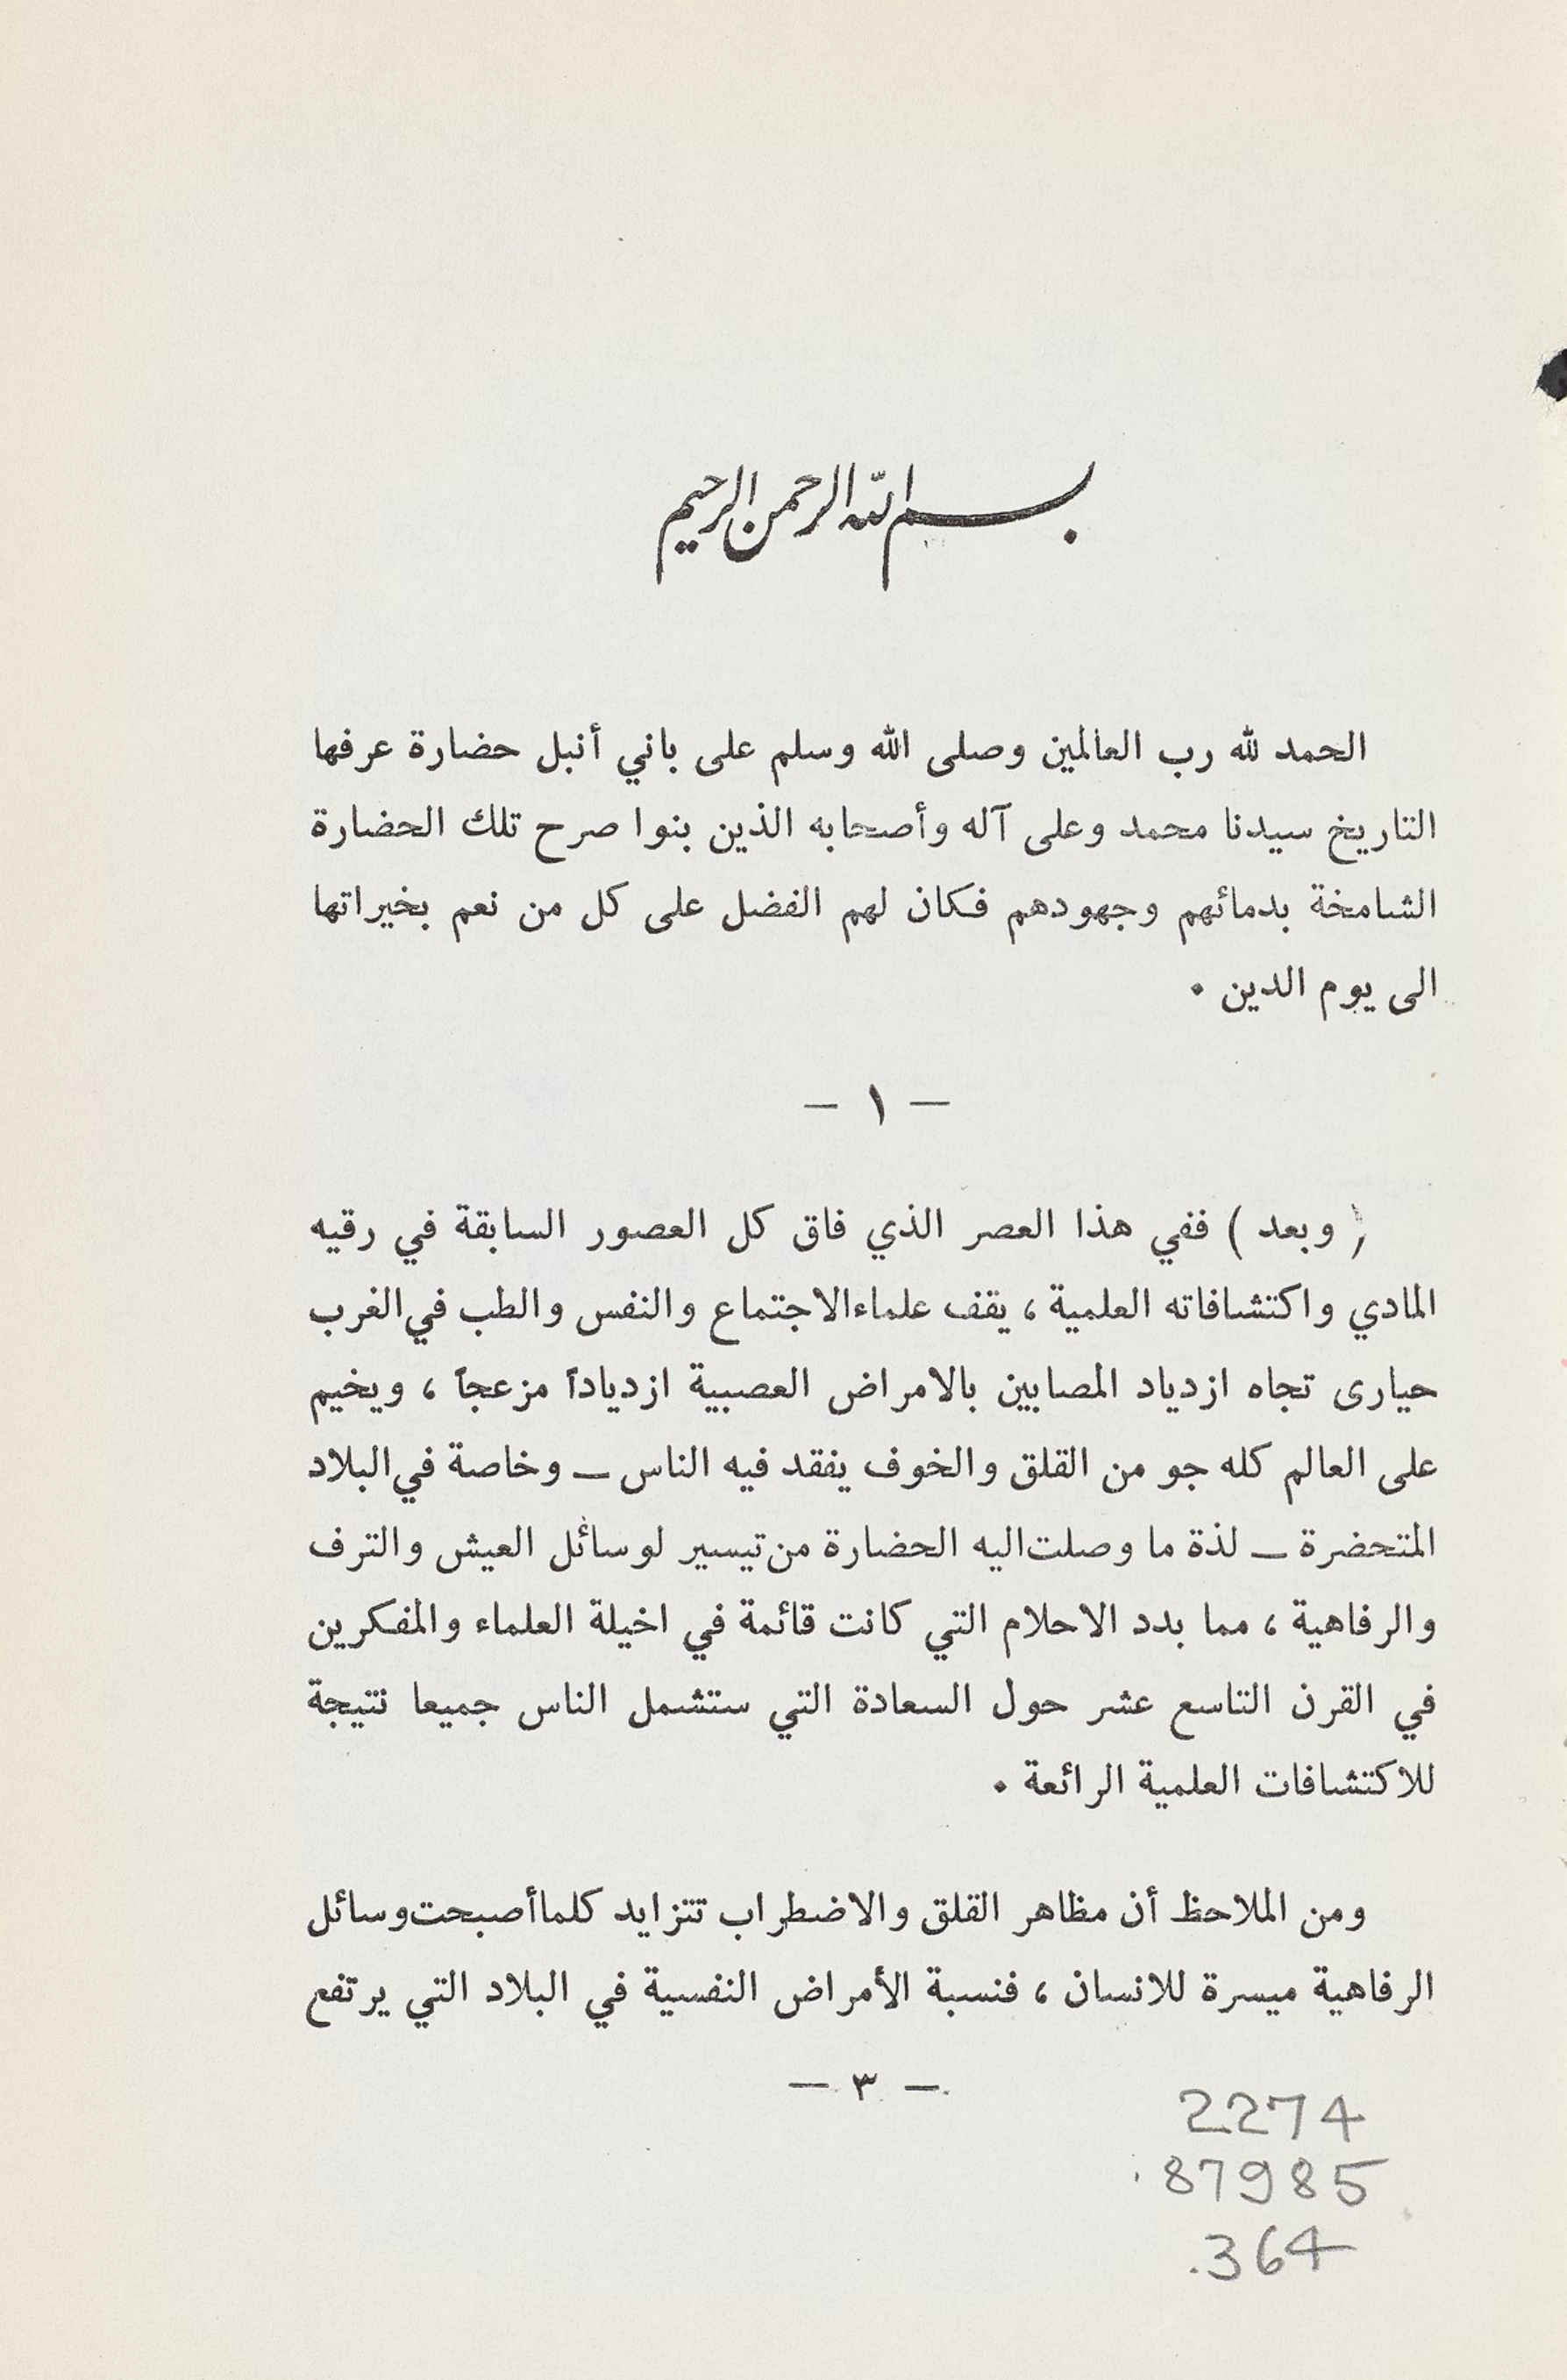 بسم الله الرحمن الرحيم
الحمد لله رب العالمين وصلى الله وسلم على باني أنبل حضارة عرفها
التاريخ سيدنا محمد وعلى آله وأصحابه الذين بنوا صرح تلك الحضارة
الشامخة بدمائهم وجهودهم فكان لهم الفضل على كل من نعم بخيراتها
الى يوم الدين .
— ١ —
( وبعد ) ففي هذا العصر الذي فاق كل العصور السابقة في رقيه
المادي واكتشافاته العلمية ، يقف علماء الاجتماع والنفس والطب في الغرب
حيارى تجاه ازدياد المصابين بالامراض العصبية ازدياداً مزعجاً ، ويخيم
على العالم كله جو من القلق والخوف يفقد فيه الناس — وخاصة في البلاد
المتحضرة — لذة ما وصلت اليه الحضارة من تيسير لوسائل العيش والترف
والرفاهية ، مما بدد الاحلام التي كانت قائمة في اخيلة العلماء والمفكرين
في القرن التاسع عشر حول السعادة التي ستشمل الناس جميعا نتيجة
للاكتشافات العلمية الرائعة .
ومن الملاحظ أن مظاهر القلق والاضطراب تتزايد كلما أصبحت وسائل
الرفاهية ميسرة للانسان ، فنسبة الأمراض النفسية في البلاد التي يرتفع
— ٣ —
2274
.87985
.364